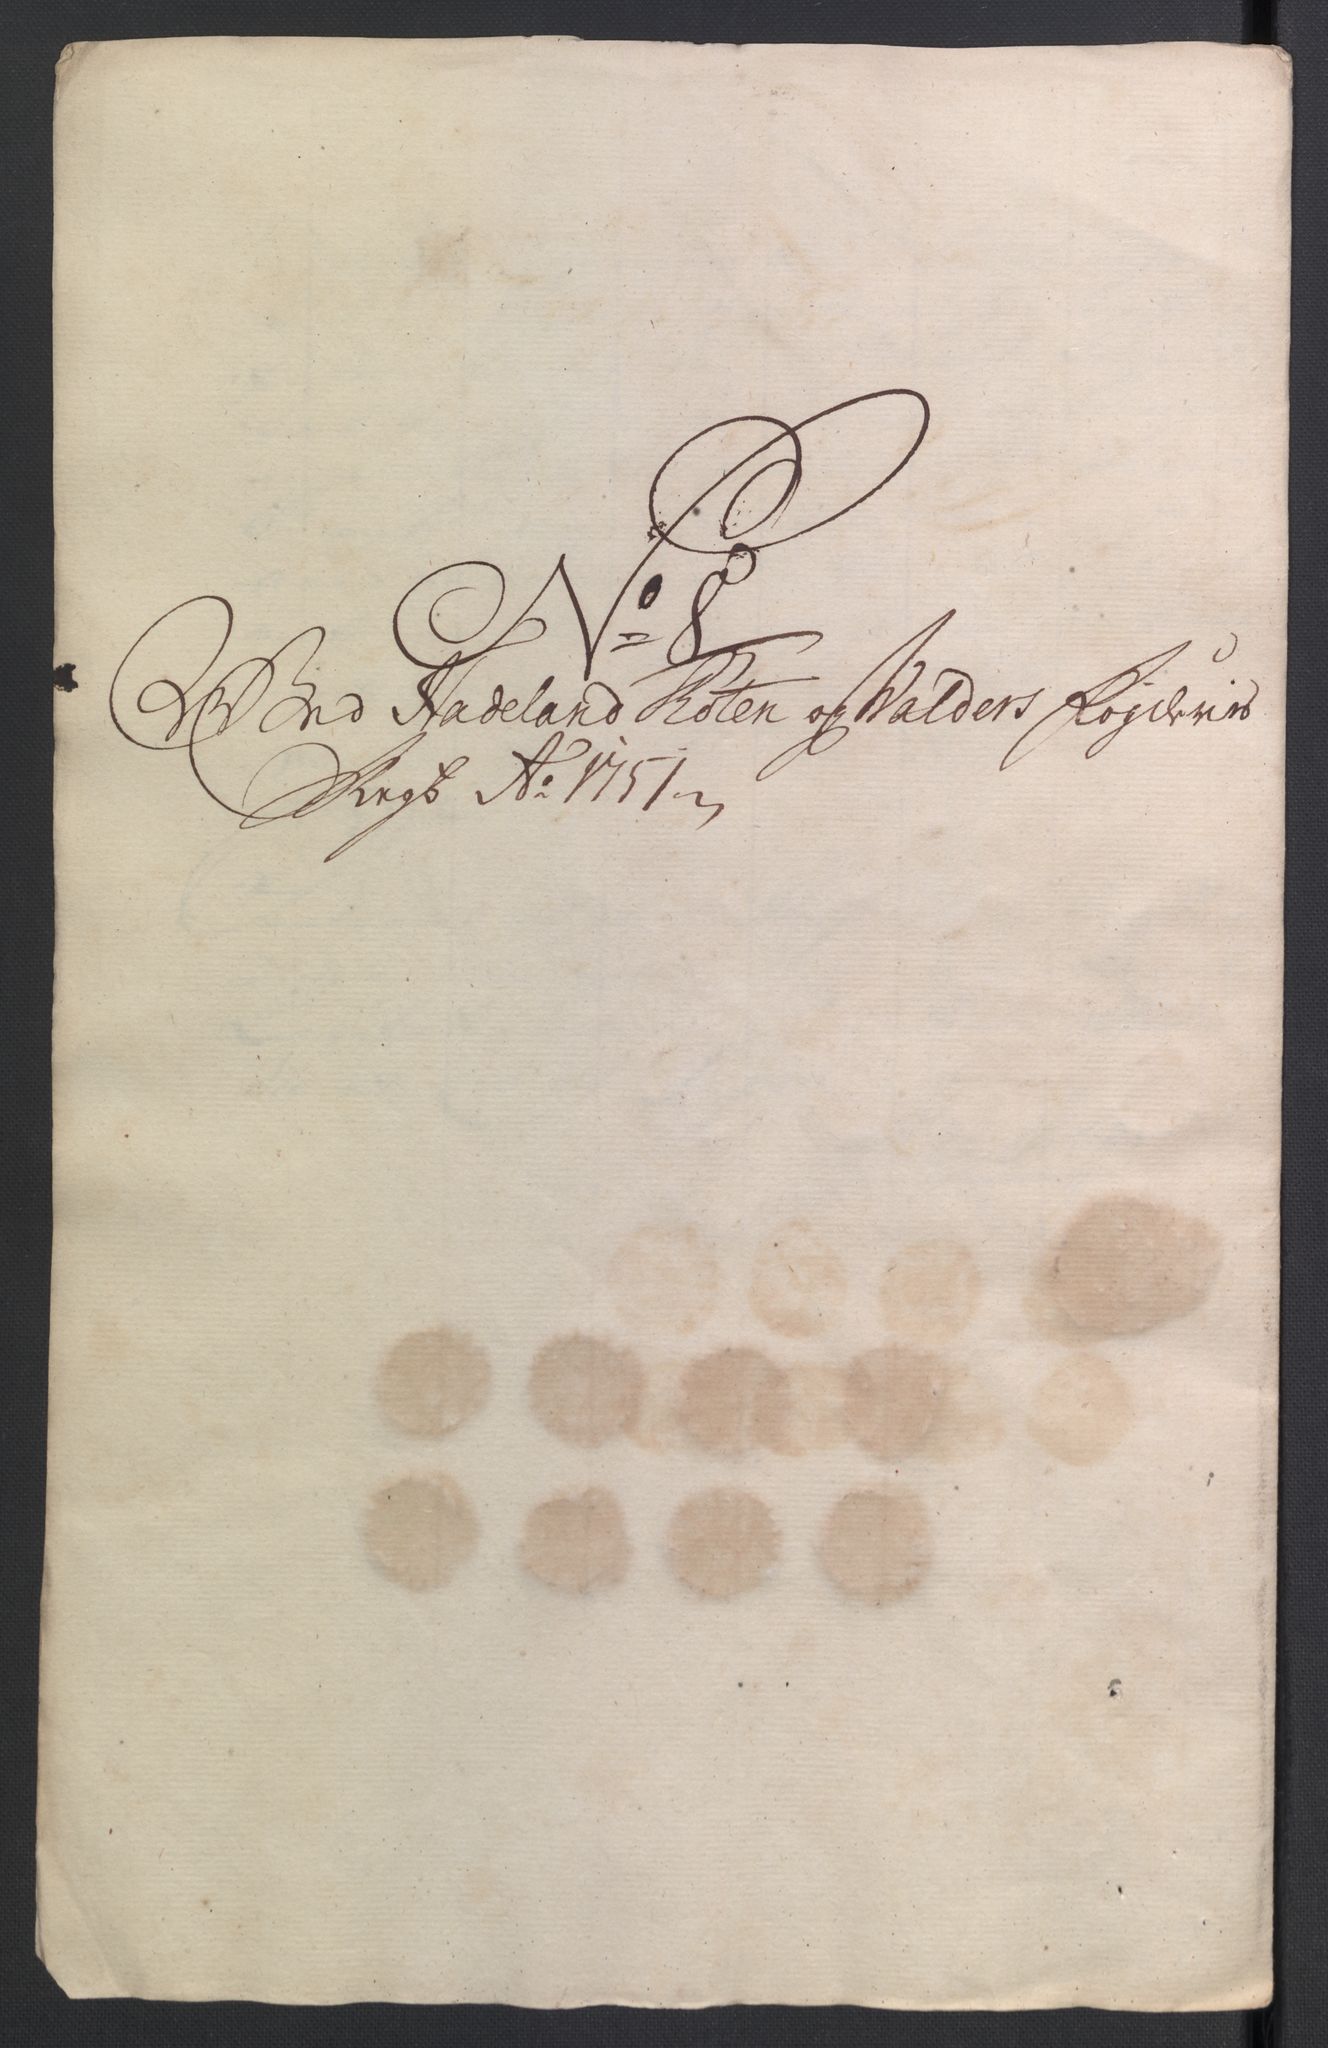 No 8
Ved Hadeland Toten og Valders Fogderies
Regsk Ao 1751